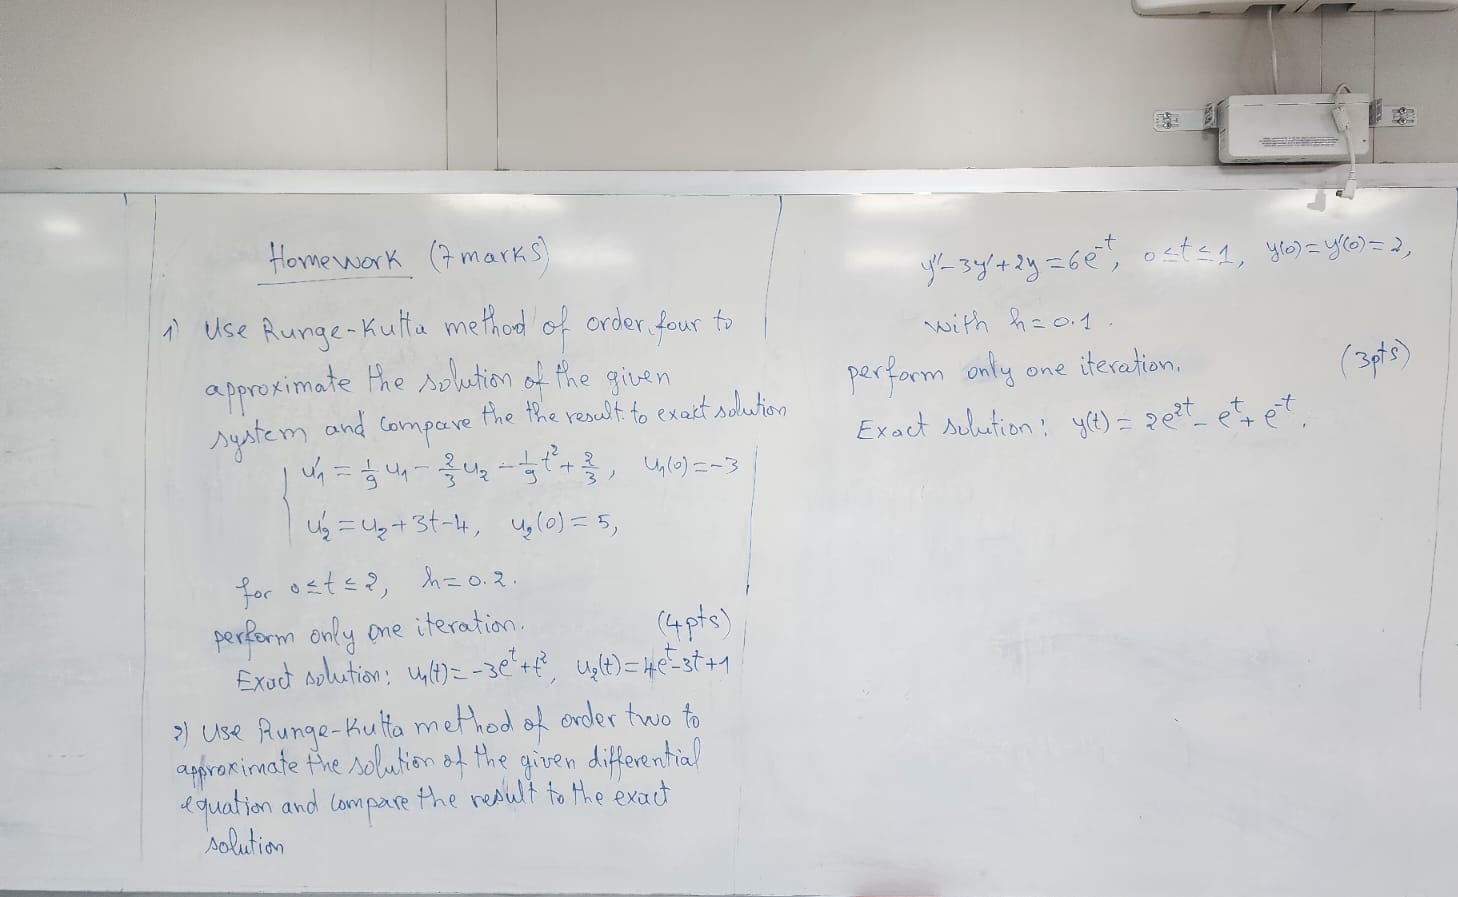 Homework (7 marks)
1) Use Runge-Kutta method of order four to
approximate the solution of the given
system and compare the the result to exact solution
u₁' = 1/9 u₁ - 2/3 u₂ - 1/9 t² + 2/3, u₁(0) = -3
u₂' = u₂ + 3t - 4, u₂(0) = 5,
for 0 ≤ t ≤ 2, h = 0.2.
perform only one iteration. (4pts)
Exact solution: u₁(t) = -3e^t + t², u₂(t) = 4e^t - 3t + 1
2) Use Runge-Kutta method of order two to
approximate the solution of the given differential
equation and compare the result to the exact
solution
y'' - 3y' + 2y = 6e^-t, 0 ≤ t ≤ 1, y(0) = y'(0) = 2,
with h = 0.1.
perform only one iteration. (3pts)
Exact solution: y(t) = 2e^2t - e^t + e^-t.